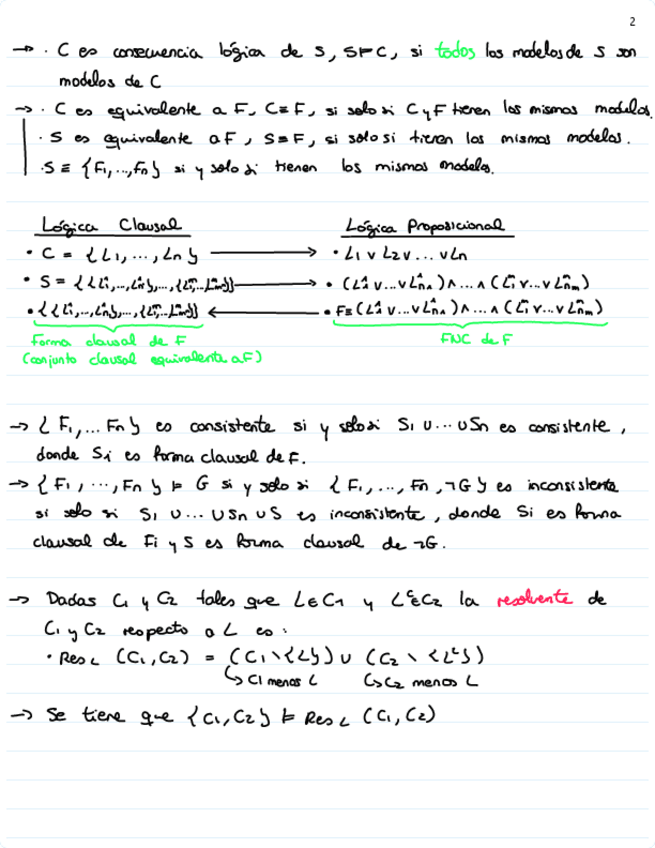 2
→ · C es consecuencia lógica de S, S⊨C, si todos los modelos de S son
modelos de C
→ · C es equivalente a F, C≡F, si solo si C y F tienen los mismos modelos.
· S es equivalente a F, S≡F, si solo si tienen los mismos modelos.
· S ≡ {F₁,...,Fn} si y solo si tienen los mismos modelos.
Lógica Clausal
Lógica Proposicional
· C = {L₁, ..., Ln} → · L₁ ∨ L₂ ∨ ... ∨ Ln
· S = {{L₁¹,...,L¹n₁},...,{L₁ᵐ,...,Lᵐnm}} → · (L₁¹ ∨...∨ L¹n₁) ∧ ... ∧ (L₁ᵐ ∨...∨ Lᵐnm)
· {{L₁¹,...,L¹n₁},...,{L₁ᵐ,...,Lᵐnm}} ← · F≡(L₁¹ ∨...∨ L¹n₁) ∧ ... ∧ (L₁ᵐ ∨...∨ Lᵐnm)
Forma clausal de F
FNC de F
(conjunto clausal equivalente a F)
→ {F₁,... Fn} es consistente si y solo si S₁ ∪ ... ∪ Sn es consistente,
donde Si es forma clausal de F.
→ {F₁, ..., Fn} ⊨ G si y solo si {F₁, ..., Fn, ¬G} es inconsistente
si solo si S₁ ∪ ... ∪ Sn ∪ S es inconsistente, donde Si es forma
clausal de Fi y S es forma clausal de ¬G.
→ Dadas C₁ y C₂ tales que L∈C₁ y Lᶜ∈C₂ la resolvente de
C₁ y C₂ respecto a L es:
· Res L (C₁, C₂) = (C₁\{L}) ∪ (C₂ \ {Lᶜ})
↳ C₁ menos L ↳ C₂ menos L
→ Se tiene que {C₁, C₂} ⊨ Res L (C₁, C₂)